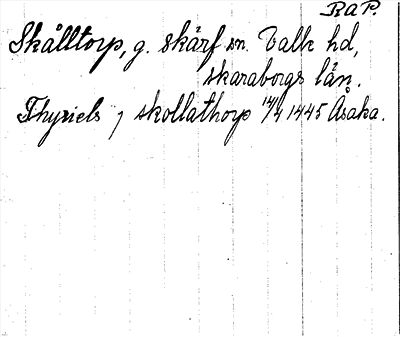 RAP.
Skålltorp, g. Skärf sn. Valle hd,
Skaraborgs län.
Thyriels j skollathorp 14/4 1445 Åsaka.